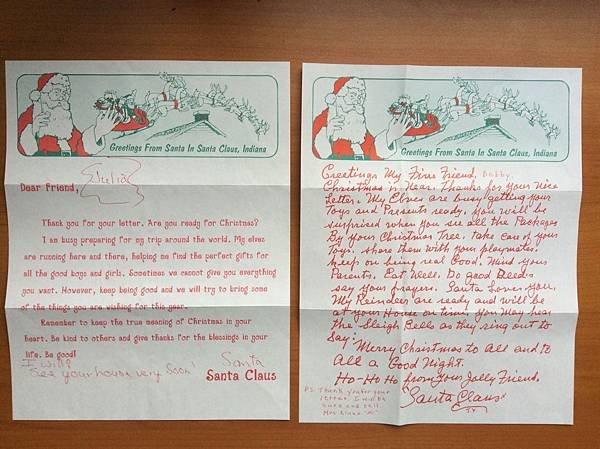 Greetings From Santa In Santa Claus, Indiana
Dear Friend, Julia
Thank you for your letter. Are you ready for Christmas?
I am busy preparing for my trip around the world. My elves
are running here and there, helping me find the perfect gifts for
all the good boys and girls. Sometimes we cannot give you everything you
want. However, keep being good and we will try to bring some
of the things you are wishing for this year.
Remember to keep the true meaning of Christmas in your
heart. Be kind to others and give thanks for the blessings in your
life. Be good!
I will
See your house very soon
Santa
Santa Claus
Greetings From Santa In Santa Claus, Indiana
Greetings My Fine Friend, Bobby.
Christmas is Near. Thanks for Your Nice
Letter. My Elves are busy getting your
Toys and Presents ready. You will be
surprised when you see all the Packages
By your Christmas Tree. Take care of your
Toys. Share them with your playmates.
Keep on being real Good. Mind your
Parents. Eat Well. Do good Deeds
say your prayers. Santa Loves you.
My Reindeer are ready and will be
at your House on time. You may Hear
the Sleigh Bells as they sing out to
Say:
Merry Christmas to All and to
All a Good Night.
Ho-Ho-Ho from Your Jolly Friend,
Santa Claus
P.S. Thank you for your
letter. I will be
sure and tell
Mrs Claus